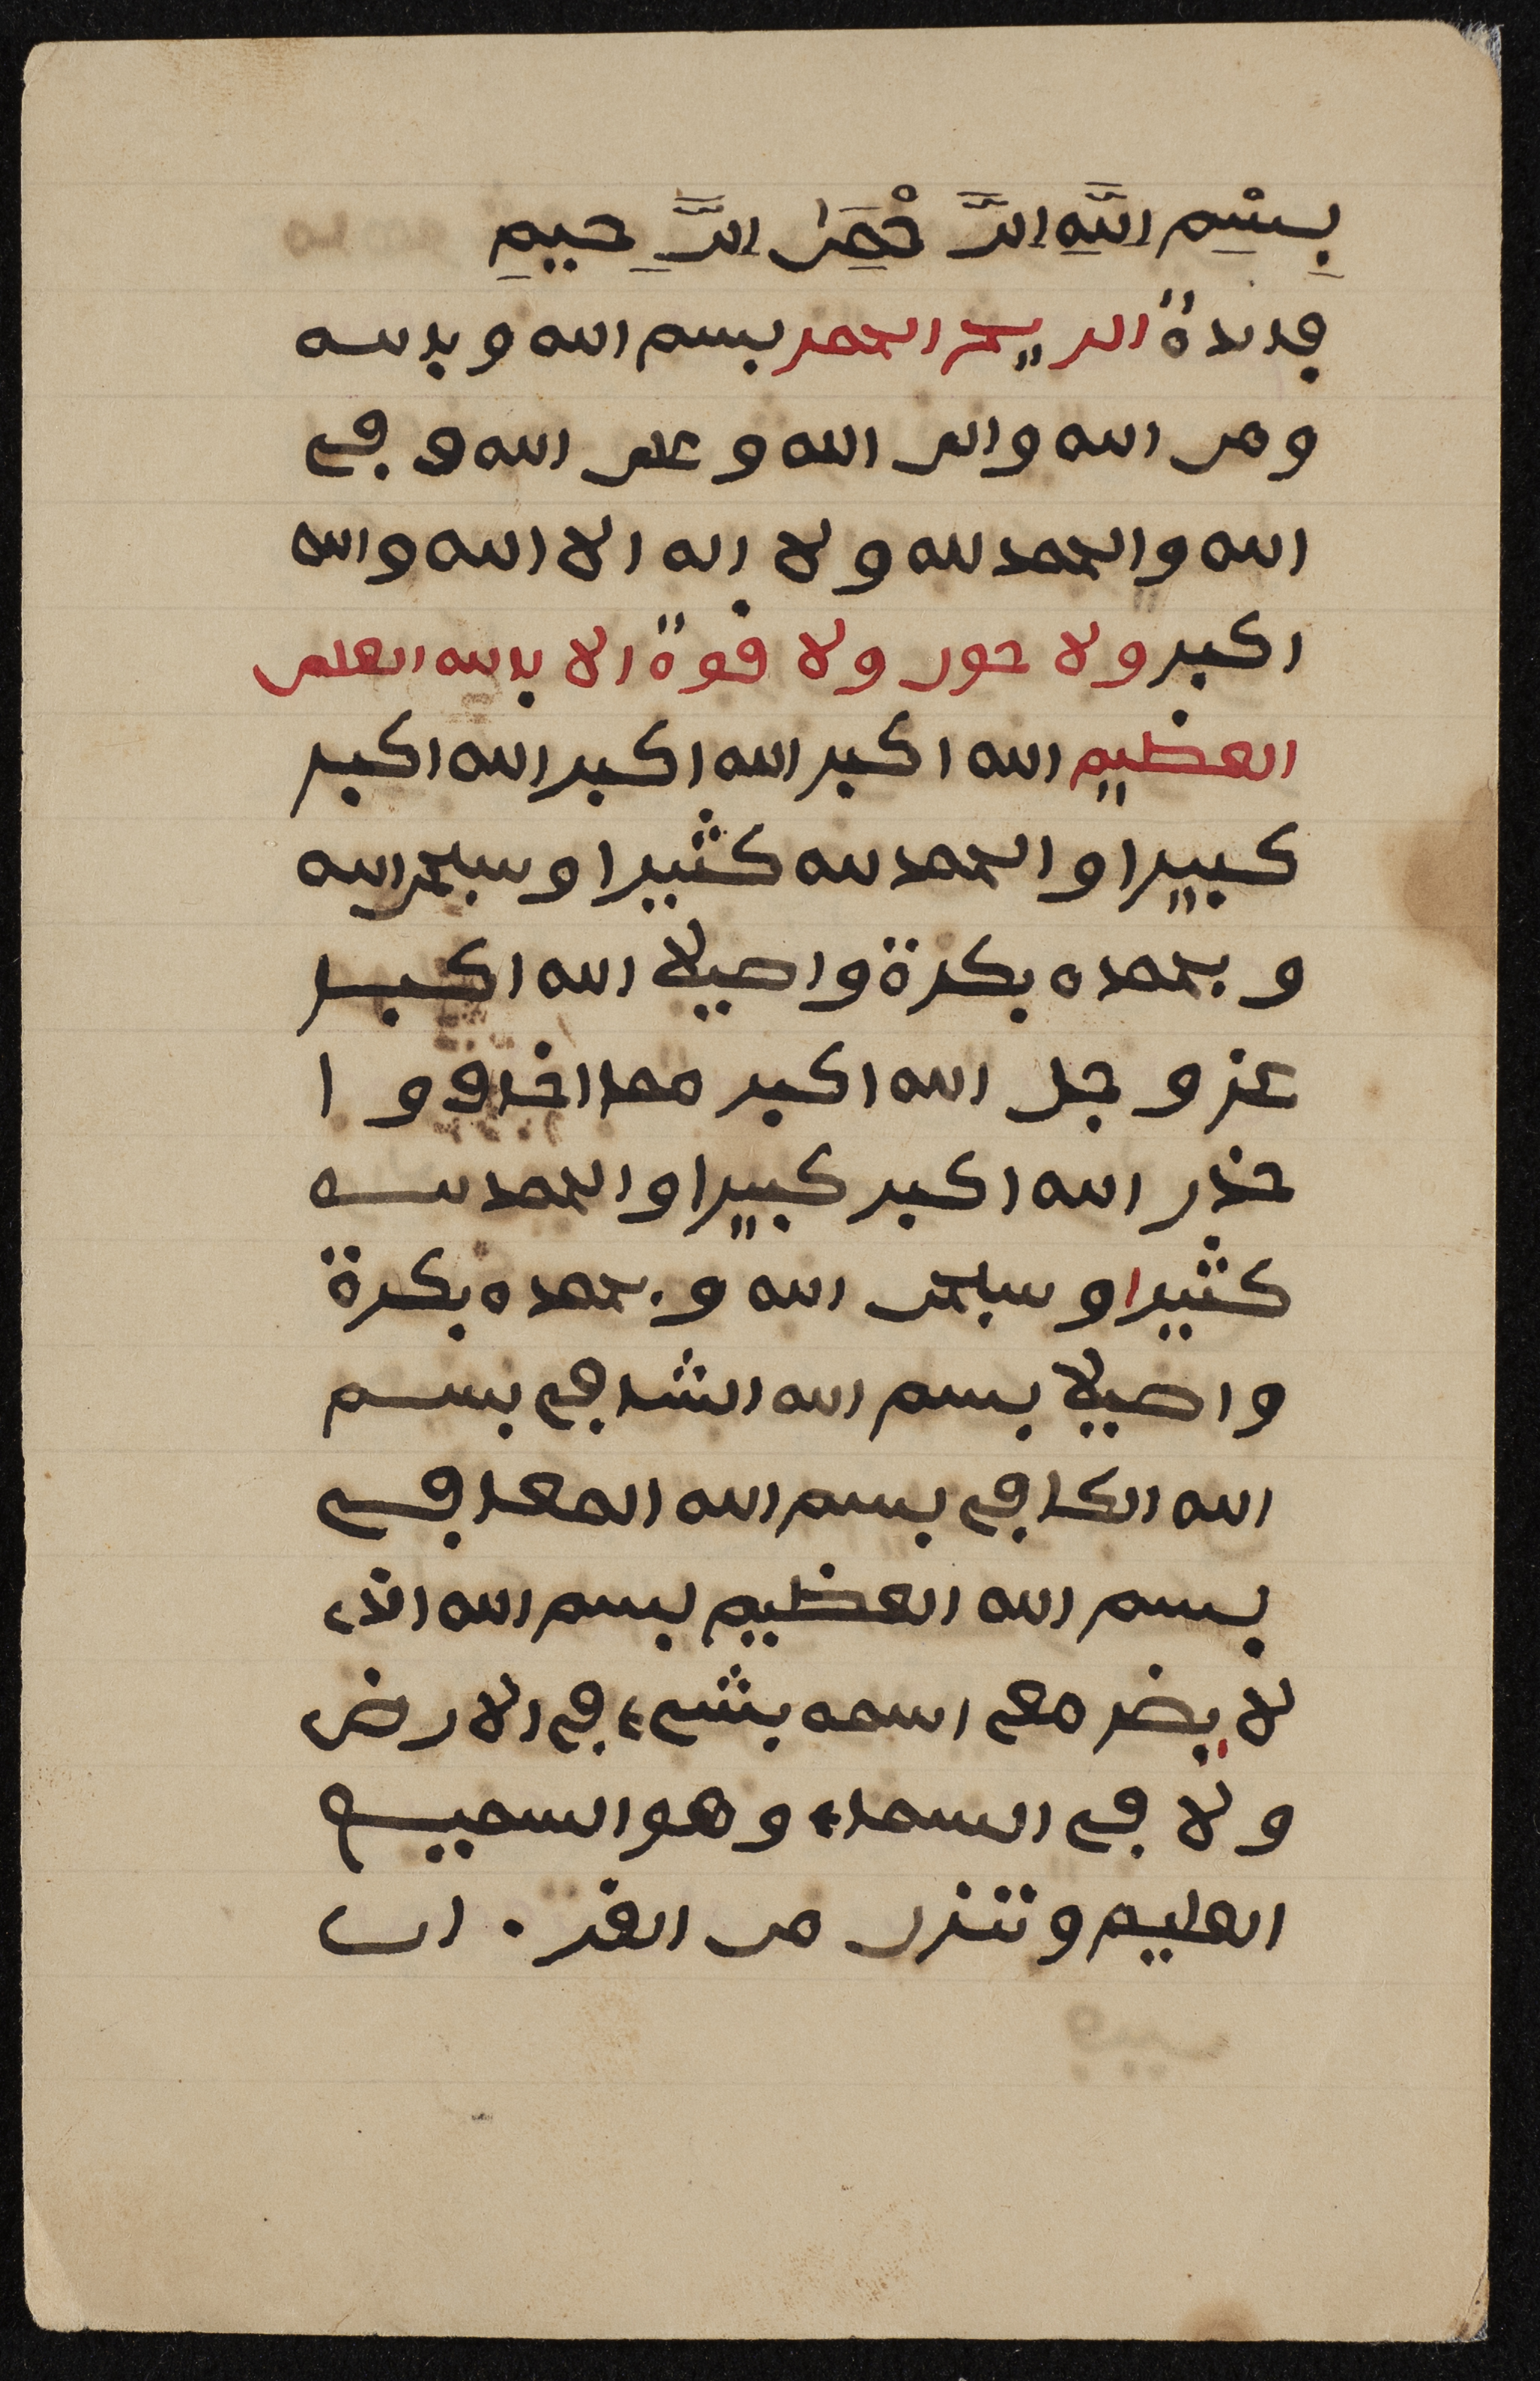 بِسْمِ اللَّهِ الرَّحْمَنِ الرَّحِيمِ
فائدة الريح الاحمر بسم الله وبالله
ومن الله والى الله وعلى الله وفي
الله والحمد لله ولا اله الا الله والله
اكبر ولا حول ولا قوة الا بالله العلى
العظيم الله اكبر الله اكبر الله اكبر
كبيرا والحمد لله كثيرا وسبحن الله
وبحمده بكرة واصيلا الله اكبر
عز وجل الله اكبر مما اخاف وا
حذر الله اكبر كبيرا والحمد لله
كثيرا وسبحن الله وبحمده بكرة
واصيلا بسم الله الشافي بسم
الله الكافي بسم الله المعافي
بسم الله العظيم بسم الله الذي
لا يضر مع اسمه شيء في الارض
ولا في السماء وهو السميع
العليم وننزل من القرءان